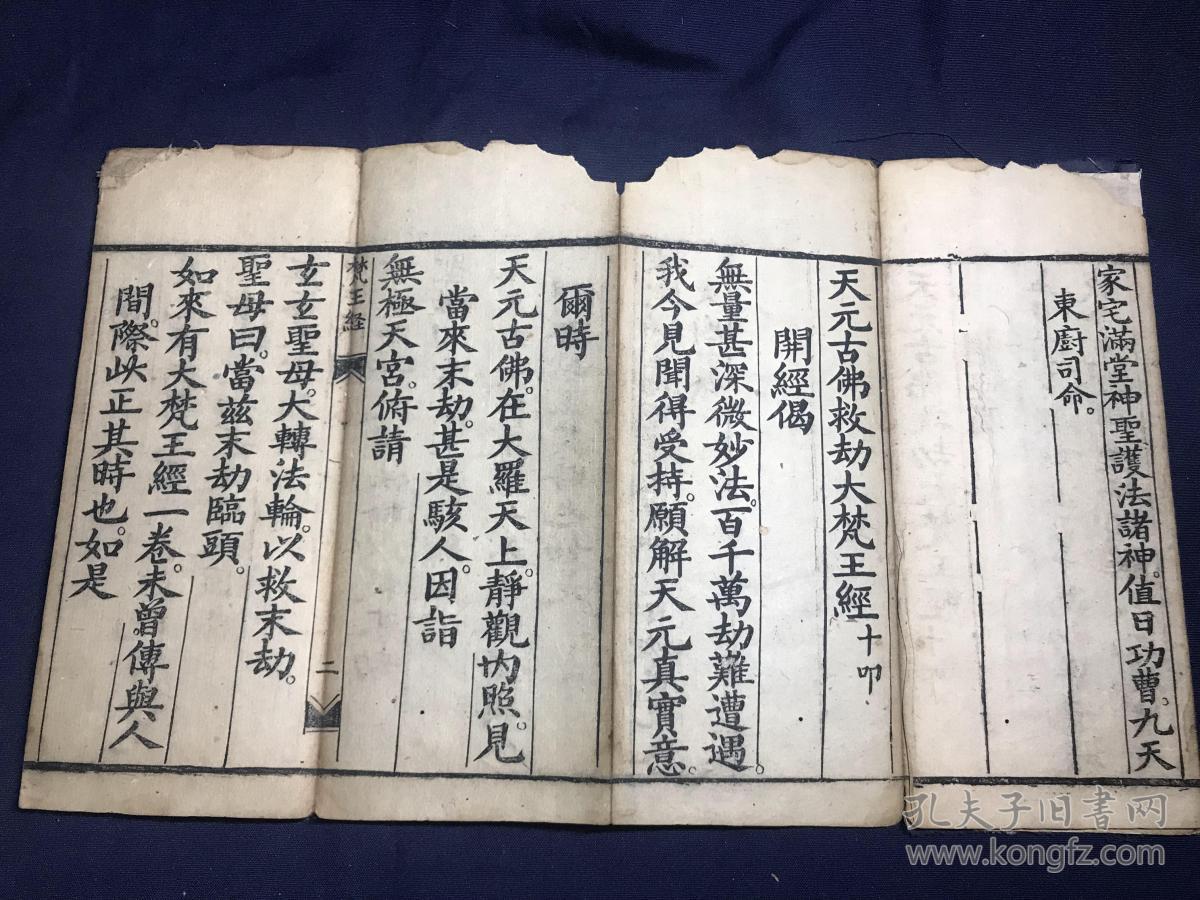 家宅滿堂神聖護法諸神。值日功曹。九天
東廚司命。
天元古佛救劫大梵王經 十叩
開經偈
無量甚深微妙法。百千萬劫難遭遇。
我今見聞得受持。願解天元真實意。
爾時
天元古佛。在大羅天上。靜觀內照。見
當來末劫。甚是駭人。因詣
無極天宮。俯請
梵王經
二
玄玄聖母。大轉法輪。以救末劫。
聖母曰。當茲末劫臨頭。
如來有大梵王經一卷。未曾傳與人
間。際此正其時也。如是
孔夫子旧书网
www.kongfz.com